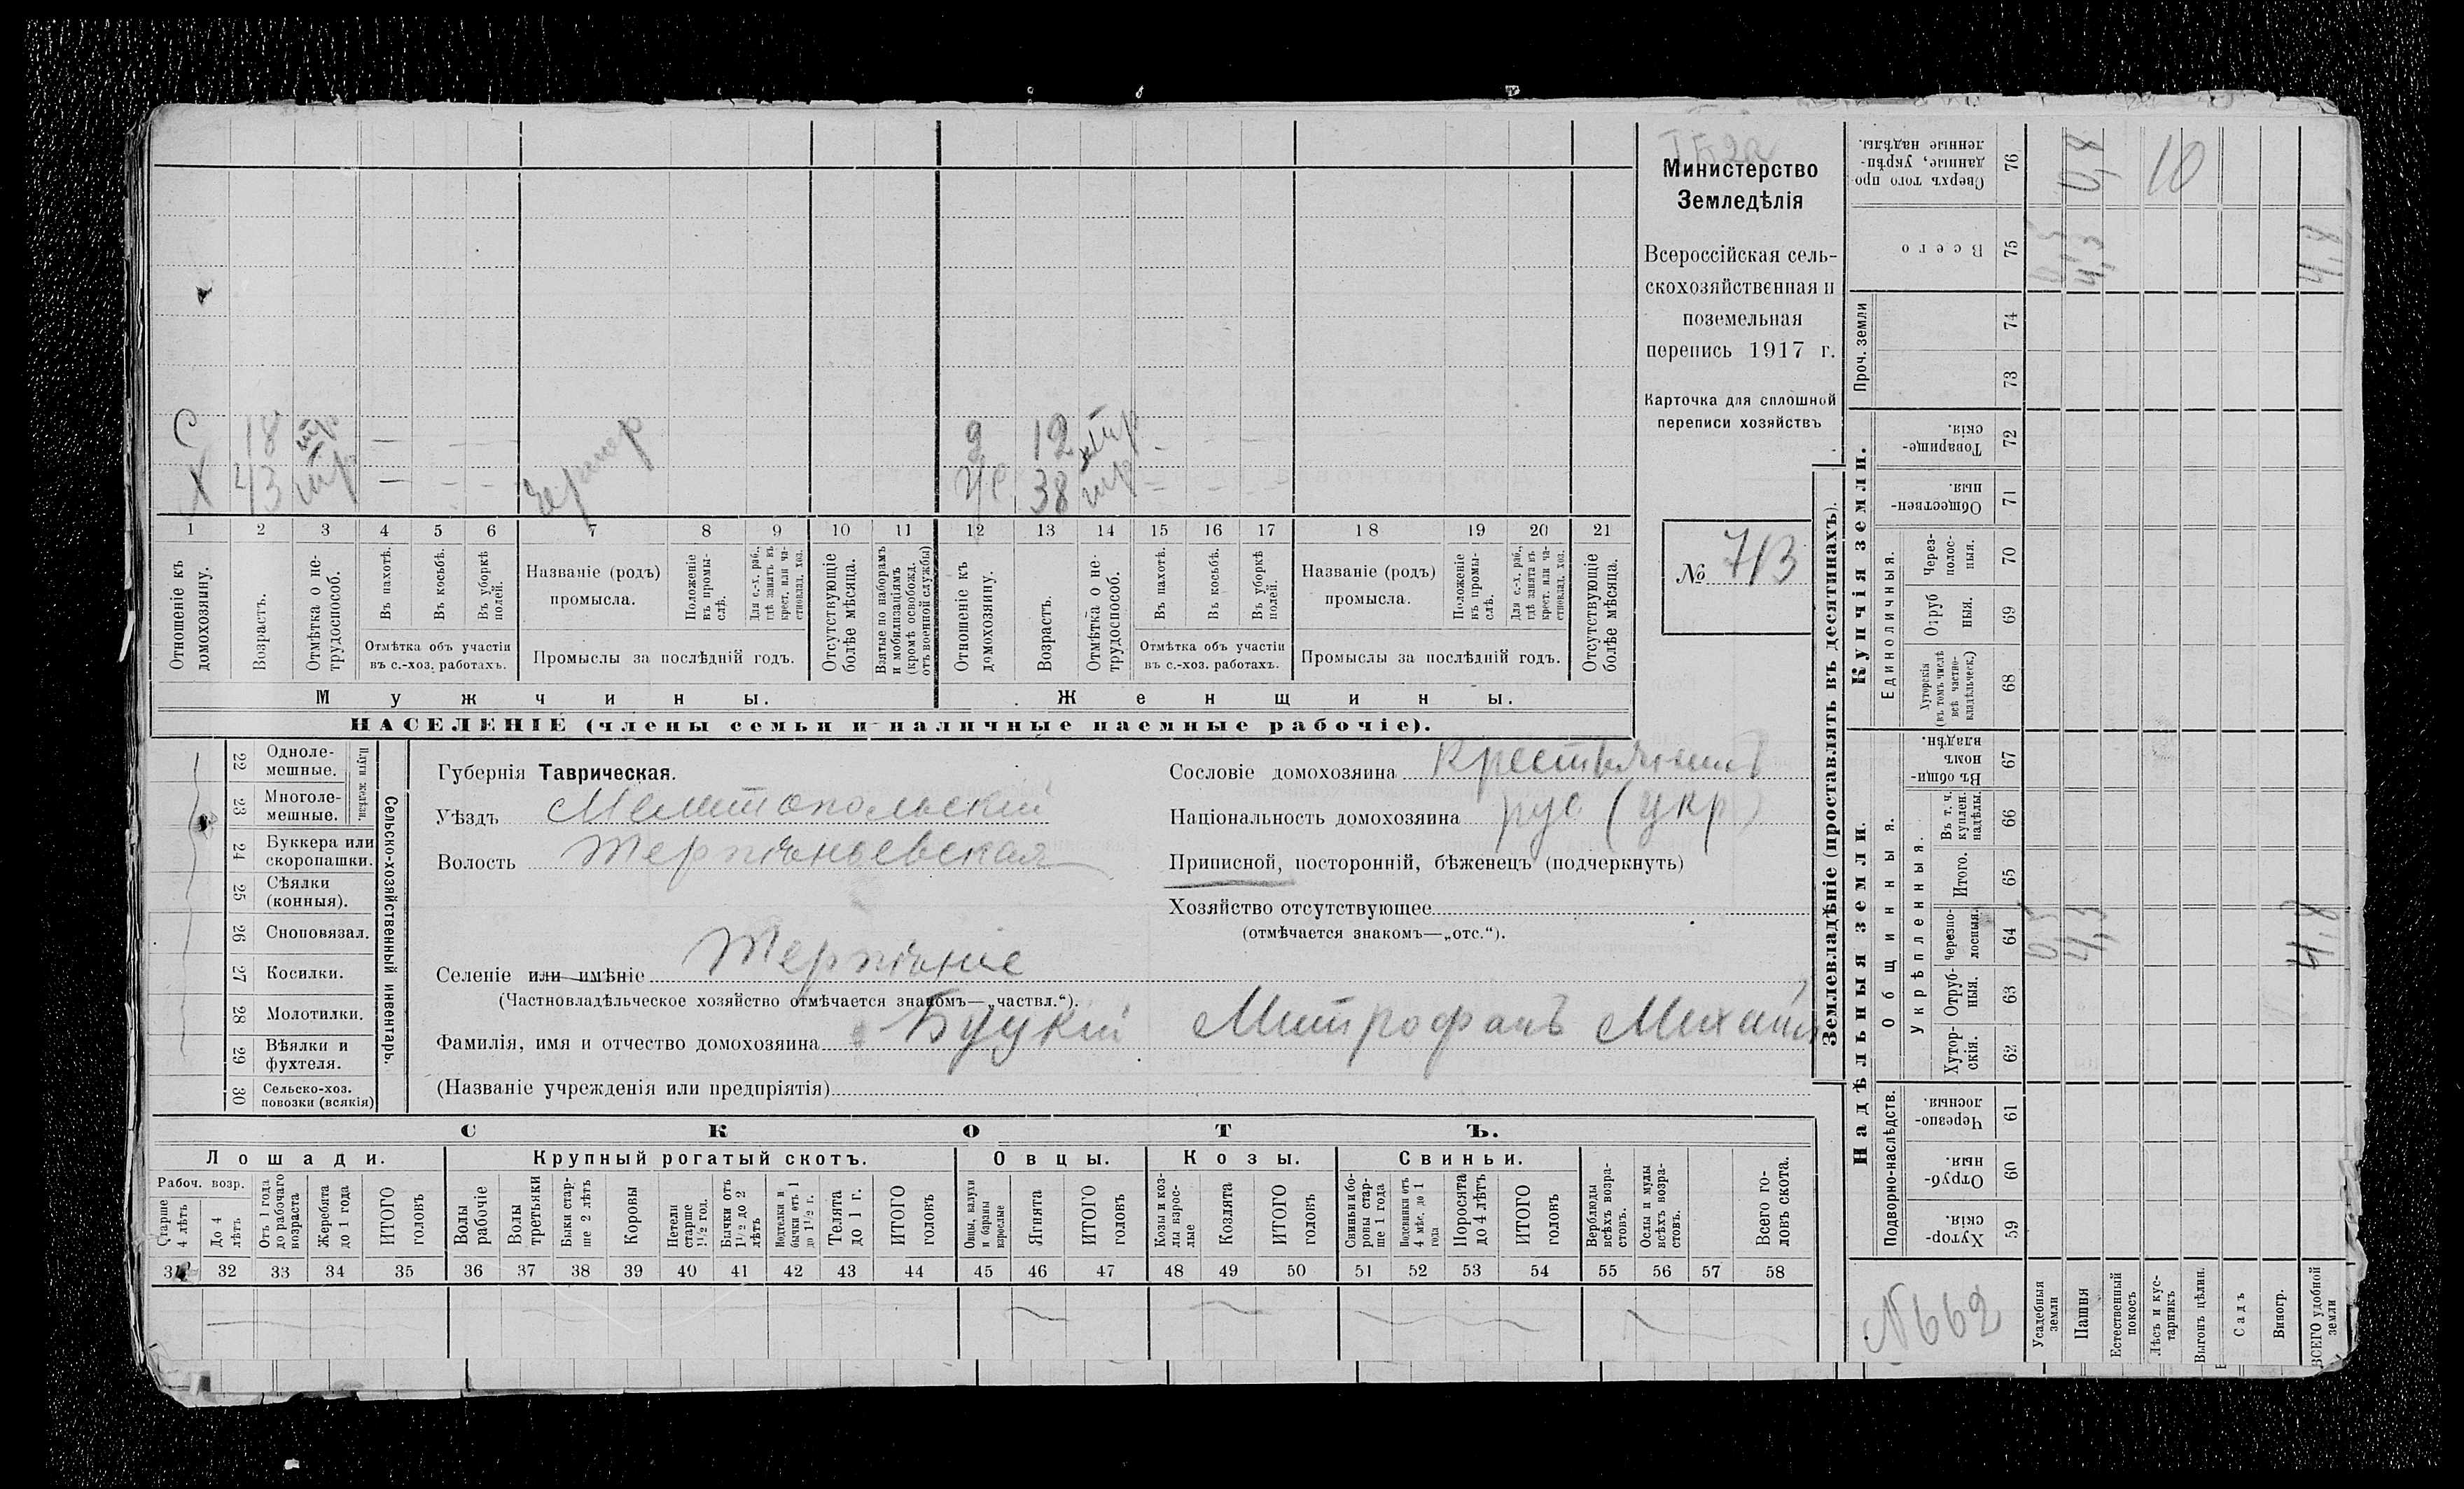 Министерство
Земледѣлія
Всероссійская сель-
скохозяйственная и
поземельная
перепись 1917 г.
Карточка для сплошной
переписи хозяйствъ
№ 713
С 18 нтр — 2 12 нтр —
Х 43 нтр — — — Же 38 нтр — — —
1 2 3 4 5 6 7 8 9 10 11 12 13 14 15 16 17 18 19 20 21
Отношеніе къ домохозяину.
Возрастъ.
Отмѣтка о не-трудоспособ.
Въ пахотѣ.
Въ косьбѣ.
Въ уборкѣ полей.
Отмѣтка объ участіи
въ с.-хоз. работахъ.
Названіе (родъ)
промысла.
Положеніе въ промы-слѣ.
Для с.-х. раб., гдѣ занятъ въ крест. или ча-стновлад. хоз.
Промыслы за послѣдній годъ.
Отсутствующіе болѣе мѣсяца.
Взятые по наборамъ и мобилизаціямъ (кромѣ освобожд. отъ военной службы)
Отношеніе къ домохозяину.
Возрастъ.
Отмѣтка о не-трудоспособ.
Въ пахотѣ.
Въ косьбѣ.
Въ уборкѣ полей.
Отмѣтка объ участіи
въ с.-хоз. работахъ.
Названіе (родъ)
промысла.
Положеніе въ промы-слѣ.
Для с.-х. раб., гдѣ занята въ крест. или ча-стновлад. хоз.
Промыслы за послѣдній годъ.
Отсутствующіе болѣе мѣсяца.
Мужчины.
Женщины.
НАСЕЛЕНІЕ (члены семьи и наличные наемные рабочіе).
Сельско-хозяйственный инвентарь.
Плуги желѣзн.
22 Одноле-мешные.
23 Многоле-мешные.
24 Буккера или скоропашки.
25 Сѣялки (конныя).
26 Сноповязал.
27 Косилки.
28 Молотилки.
29 Вѣялки и фухтеля.
30 Сельско-хоз. повозки (всякія)
Губернія Таврическая.
Уѣздъ Мелитопольскій
Волость Терпѣньевская
Селеніе или имѣніе Терпѣніе
(Частновладѣльческое хозяйство отмѣчается знакомъ—„частвл.“).
Сословіе домохозяина Крестьянинъ
Національность домохозяина рус (укр)
Приписной, посторонній, бѣженецъ (подчеркнуть)
Хозяйство отсутствующее
(отмѣчается знакомъ—„отс.“).
Фамилія, имя и отчество домохозяина Буцкій Митрофанъ Михайл
(Названіе учрежденія или предпріятія)
СКОТЪ.
Лошади.
Крупный рогатый скотъ.
Овцы.
Козы.
Свиньи.
Рабоч. возр.
Старше 4 лѣтъ
До 4 лѣтъ
Отъ 1 года до рабочаго возраста
Жеребята до 1 года
ИТОГО головъ
Волы рабочіе
Волы третьяки
Быки стар-ше 2 лѣтъ
Коровы
Нетели старше 1½ год.
Бычки отъ 1½ до 2 лѣтъ
Нетелки и бычки отъ 1 до 1½ г.
Телята до 1 г.
ИТОГО головъ
Овцы, валухи и бараны взрослые
Ягнята
ИТОГО головъ
Козы и коз-лы взрос-лые
Козлята
ИТОГО головъ
Свиньи и бо-ровы стар-ше 1 года
Подсвинки отъ 4 мѣс. до 1 года
Поросята до 4 лѣтъ
ИТОГО головъ
Верблюды всѣхъ возра-стовъ.
Ослы и мулы всѣхъ возра-стовъ.
Всего го-ловъ скота.
31 32 33 34 35 36 37 38 39 40 41 42 43 44 45 46 47 48 49 50 51 52 53 54 55 56 57 58
Землевладѣніе (проставлять въ десятинахъ).
Купчія земли.
Проч. земли
Единоличныя.
76 Сверхъ того про-данные, укрѣп-ленные надѣлы. 4,8 10
75 Всего 0,5 4,3 4,8
74
73
72 Товарище-скія.
71 Обществен-ныя.
70 Через-полос-ныя.
69 Отруб-ныя.
68 Хуторскія (въ томъ числѣ всѣ частно-владѣльческ.)
Надѣльныя земли.
Общинныя.
Укрѣпленныя.
67 Въ общин-номъ владѣн.
66 Въ т. ч. куплен. надѣлы.
65 Итого.
64 Черезпо-лосныя. 0,5 4,3 4,8
63 Отруб-ныя.
62 Хутор-скія.
Подворно-наслѣдств.
61 Черезпо-лосныя.
60 Отруб-ныя.
59 Хутор-скія.
N 662
Усадебныя земли
Пашня
Естественный покосъ
Лѣсъ и кус-тарникъ
Выгонъ цѣлин.
Садъ
Виногр.
ВСЕГО удобной земли